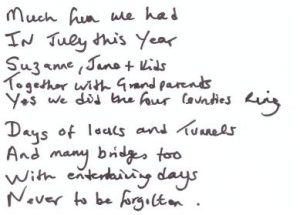 Much fun we had
IN July this Year
Suzanne, Jane + Kids
Together with Grandparents
Yes we did the four Counties Ring
Days of locks and Tunnels
And many bridges too
With entertaining days
Never to be forgotten.